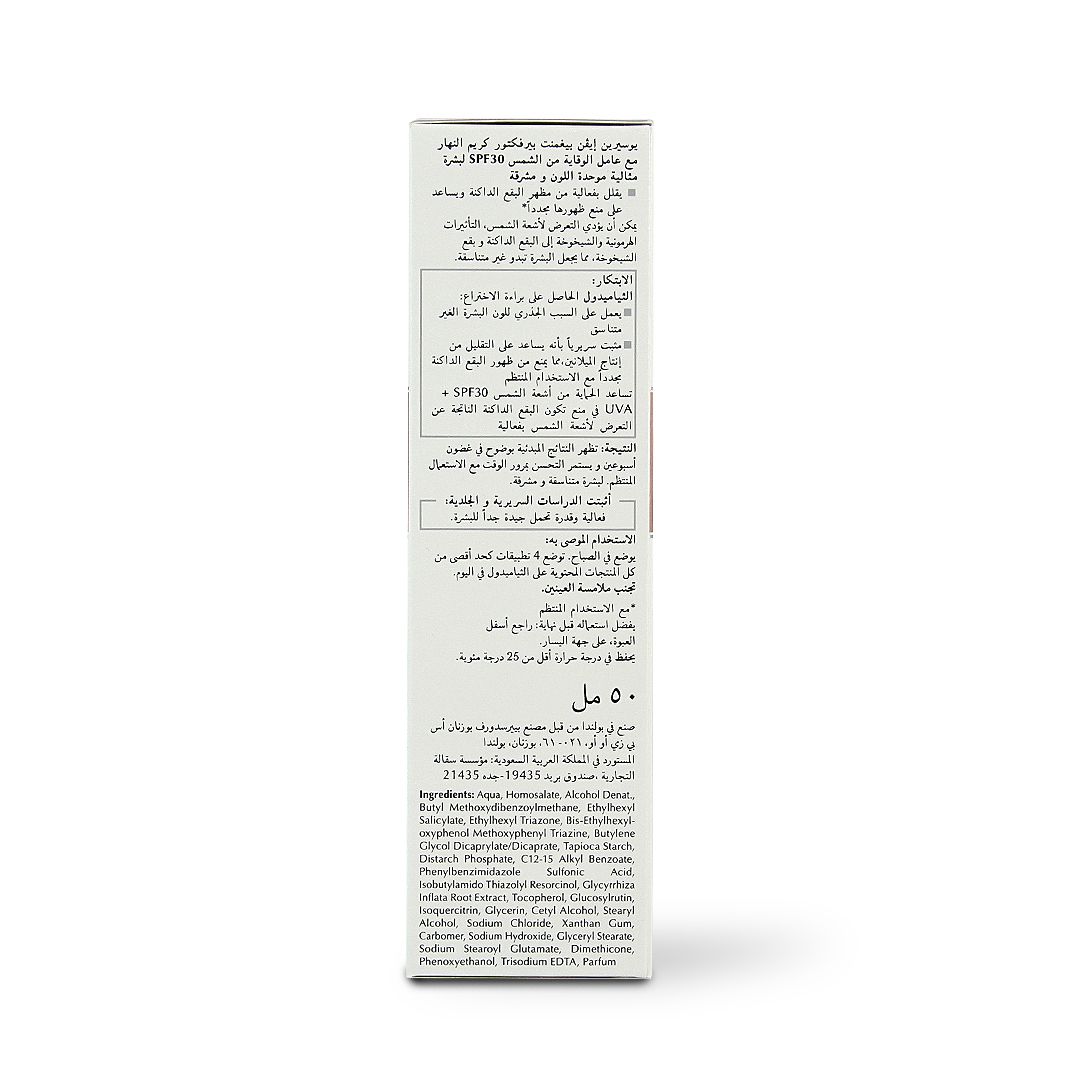 يوسيرين إيڤن بيغمنت بيرفكتور كريم النهار
مع عامل الوقاية من الشمس SPF30 لبشرة
مثالية موحدة اللون و مشرقة
يقلل بفعالية من مظهر البقع الداكنة ويساعد
على منع ظهورها مجدداً*
يمكن أن يؤدي التعرض لأشعة الشمس، التأثيرات
الهرمونية والشيخوخة إلى البقع الداكنة و بقع
الشيخوخة، مما يجعل البشرة تبدو غير متناسقة.
الابتكار:
الثياميدول الحاصل على براءة الاختراع:
يعمل على السبب الجذري للون البشرة الغير
متناسق
مثبت سريرياً بأنه يساعد على التقليل من
إنتاج الميلانين،مما يمنع من ظهور البقع الداكنة
مجدداً مع الاستخدام المنتظم
تساعد الحماية من أشعة الشمس SPF30 +
UVA في منع تكون البقع الداكنة الناتجة عن
التعرض لأشعة الشمس بفعالية
النتيجة: تظهر النتائج المبدئية بوضوح في غضون
أسبوعين و يستمر التحسن بمرور الوقت مع الاستعمال
المنتظم. لبشرة متناسقة و مشرقة.
أثبتت الدراسات السريرية و الجلدية:
فعالية وقدرة تحمل جيدة جداً للبشرة.
الاستخدام الموصى به:
يوضع في الصباح. توضع 4 تطبيقات كحد أقصى من
كل المنتجات المحتوية على الثياميدول في اليوم.
تجنب ملامسة العينين.
*مع الاستخدام المنتظم
يفضل استعماله قبل نهاية: راجع أسفل
العبوة، على جهة اليسار.
يحفظ في درجة حرارة أقل من 25 درجة مئوية.
٥٠ مل
صنع في بولندا من قبل مصنع بييرسدورف بوزنان أس
بي زي أو أو، ٠٢١-٦١، بوزنان، بولندا
المستورد في المملكة العربية السعودية: مؤسسة سقالة
التجارية ،صندوق بريد 19435-جده 21435
Ingredients: Aqua, Homosalate, Alcohol Denat.,
Butyl Methoxydibenzoylmethane, Ethylhexyl
Salicylate, Ethylhexyl Triazone, Bis-Ethylhexyl-
oxyphenol Methoxyphenyl Triazine, Butylene
Glycol Dicaprylate/Dicaprate, Tapioca Starch,
Distarch Phosphate, C12-15 Alkyl Benzoate,
Phenylbenzimidazole Sulfonic Acid,
Isobutylamido Thiazolyl Resorcinol, Glycyrrhiza
Inflata Root Extract, Tocopherol, Glucosylrutin,
Isoquercitrin, Glycerin, Cetyl Alcohol, Stearyl
Alcohol, Sodium Chloride, Xanthan Gum,
Carbomer, Sodium Hydroxide, Glyceryl Stearate,
Sodium Stearoyl Glutamate, Dimethicone,
Phenoxyethanol, Trisodium EDTA, Parfum